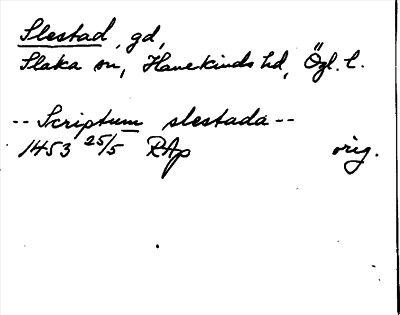 Slestad, gd,
Slaka sn, Hanekinds hd, Ögl. l.
-- Scriptum slestada --
1453 25/5 RAp orig.